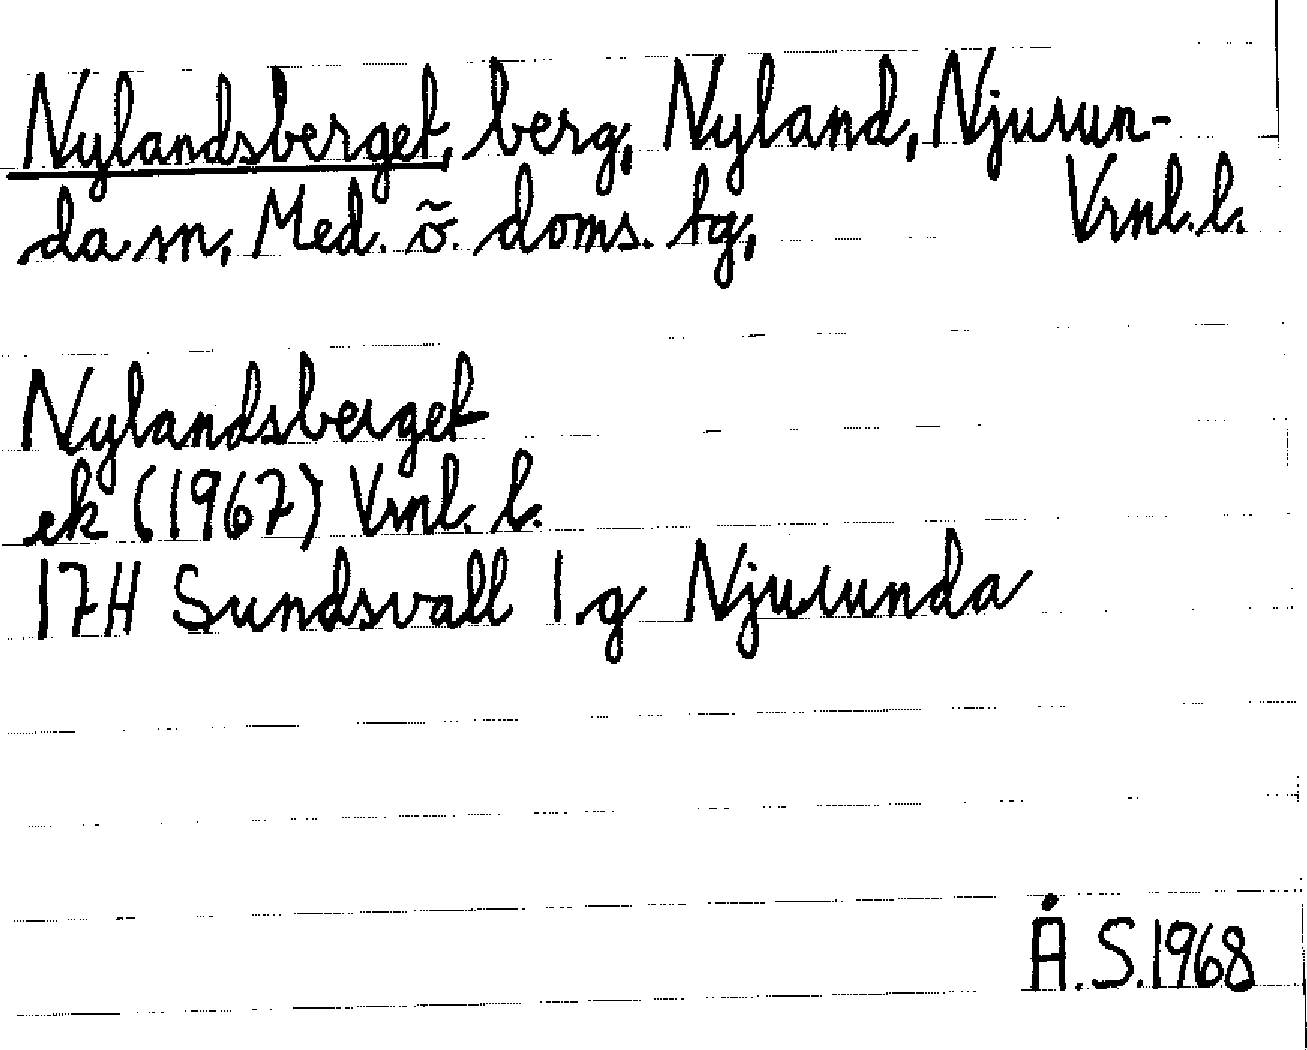 Nylandsberget, berg, Nyland, Njurun-
da sn, Med. ö. doms. tg, Vrnl. l.
Nylandsberget
ek (1967) Vrnl. l.
17H Sundsvall 1 g Njurunda
Å.S.1968